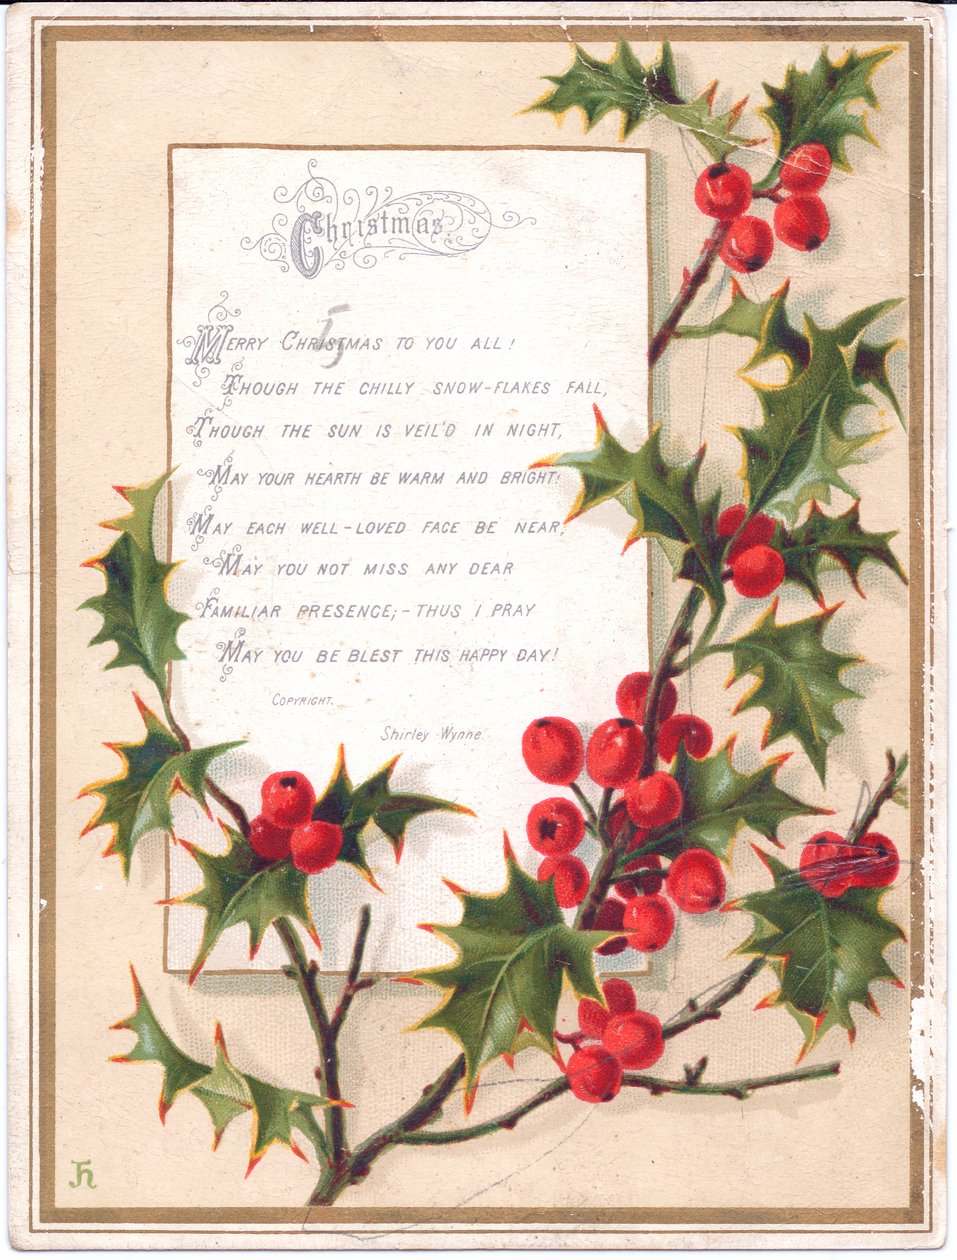 Christmas.
MERRY CHRISTMAS TO YOU ALL!
THOUGH THE CHILLY SNOW-FLAKES FALL,
THOUGH THE SUN IS VEIL'D IN NIGHT,
MAY YOUR HEARTH BE WARM AND BRIGHT!
MAY EACH WELL-LOVED FACE BE NEAR,
MAY YOU NOT MISS ANY DEAR
FAMILIAR PRESENCE;- THUS I PRAY
MAY YOU BE BLEST THIS HAPPY DAY!
COPYRIGHT.
Shirley Wynne